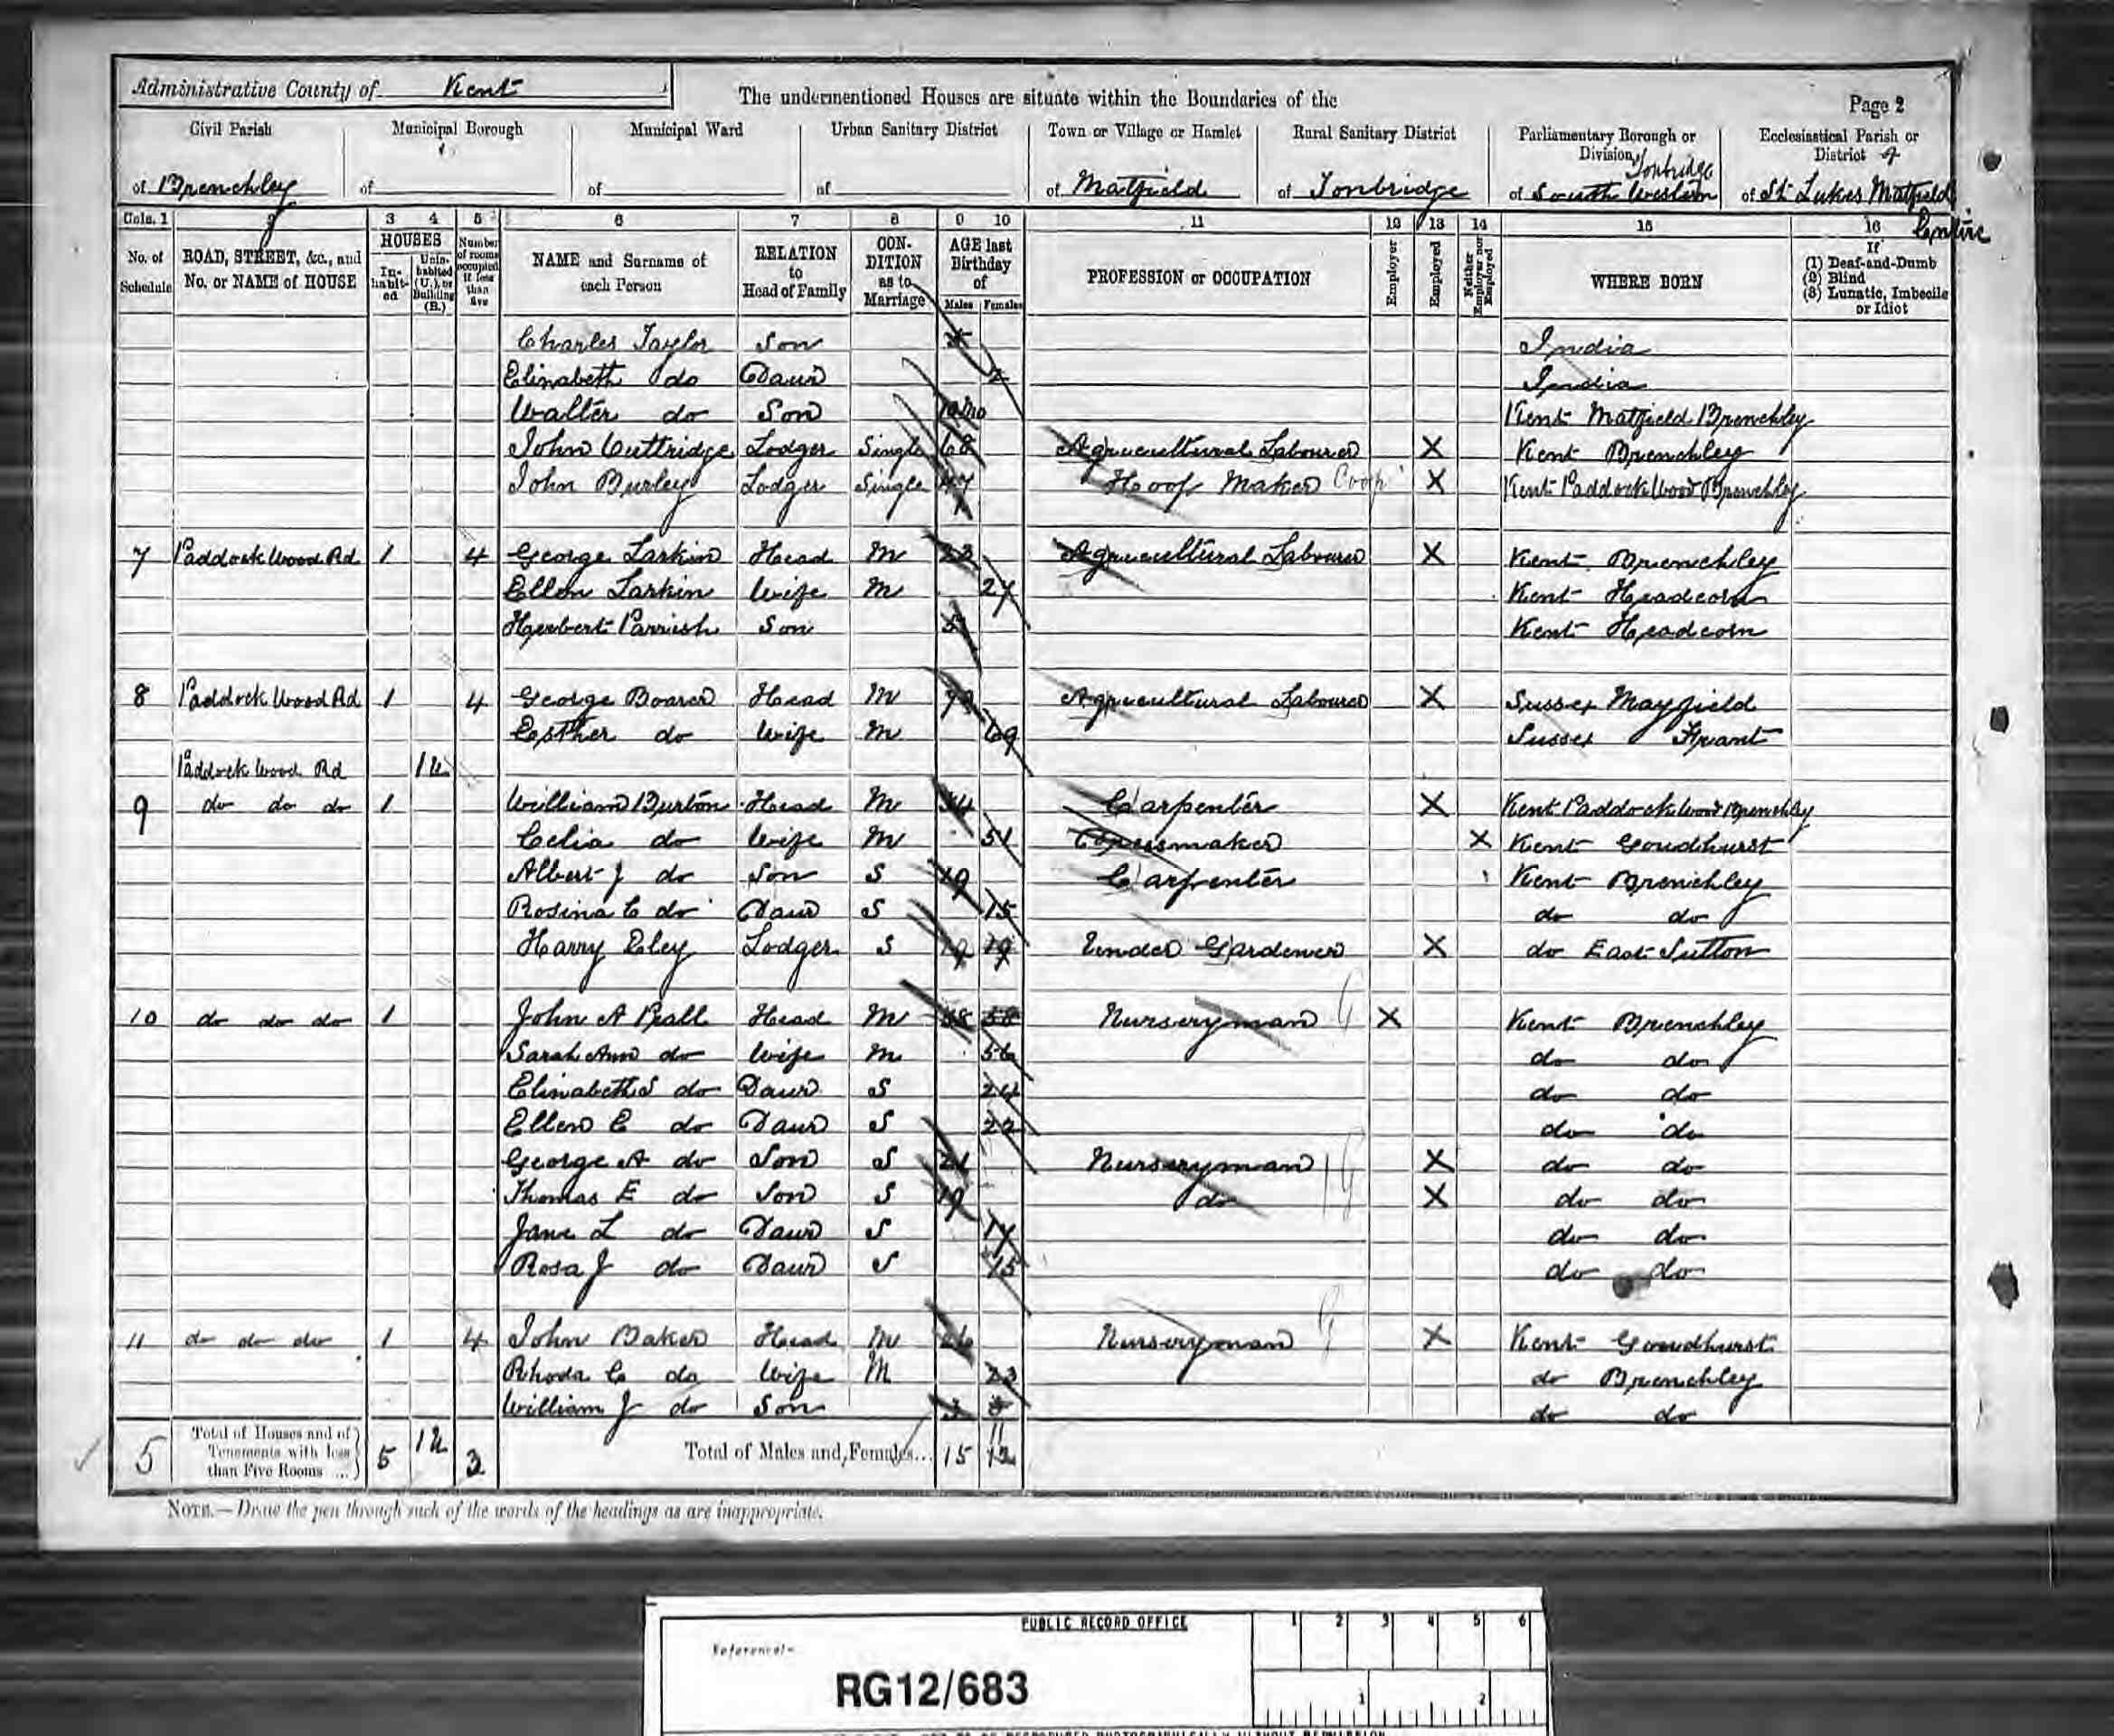 Administrative County of Kent
The undermentioned Houses are situate within the Boundaries of the
Page 2
Civil Parish
of Brenchley
Municipal Borough
of
Municipal Ward
of
Urban Sanitary District
of
Town or Village or Hamlet
of Matfield
Rural Sanitary District
of Tonbridge
Parliamentary Borough or
Division
Tonbridge
of South Western
Ecclesiastical Parish or
District of
of St Lukes Matfield
Entire
Cols. 1 2 3 4 5 6 7 8 9 10 11 12 13 14 15 16
No. of Schedule
ROAD, STREET, &c., and No. or NAME of HOUSE
HOUSES
In-habit-ed
Unin-habited (U.), or Building (B.)
Number of rooms occupied if less than five
NAME and Surname of each Person
RELATION to Head of Family
CON-DITION as to Marriage
AGE last Birthday of
Males Females
PROFESSION or OCCUPATION
Employer
Employed
Neither Employer nor Employed
WHERE BORN
If
(1) Deaf-and-Dumb
(2) Blind
(3) Lunatic, Imbecile or Idiot
Charles Taylor Son India
Elizabeth do Daur 2 India
Walter do Son 10 mo Kent Matfield Brenchley
John Cuttridge Lodger Single 68 Agricultural Labourer X Kent Brenchley
John Burley Lodger Single 47 Hoop Maker Coop X Kent Paddock Wood Brenchley
7 Paddock Wood Rd 1 4 George Larkin Head M 23 Agricultural Labourer X Kent Brenchley
Ellen Larkin Wife M 27 Kent Headcorn
Herbert Parrish Son 5 Kent Headcorn
8 Paddock Wood Rd 1 4 George Boarer Head M Agricultural Labourer X Sussex Mayfield
Esther do Wife M 69 Sussex Frant
Paddock Wood Rd 1 U
9 do do do 1 William Burton Head M 54 Carpenter X Kent Paddock Wood Brenchley
Celia do Wife M 51 Dressmaker X Kent Goudhurst
Albert J do Son S 19 Carpenter Kent Brenchley
Rosina C do Daur S 15 do do
Harry Eley Lodger S 19 19 Under Gardener X do East Sutton
10 do do do 1 John A Peall Head M 58 58 Nurseryman G X Kent Brenchley
Sarah Ann do Wife M 56 do do
Elizabeth S do Daur S 24 do do
Ellen E do Daur S 22 do do
George A do Son S 21 Nurseryman G X do do
Thomas E do Son S 19 do G X do do
Jane L do Daur S 17 do do
Rosa J do Daur S 15 do do
11 do do do 1 4 John Baker Head M 26 Nurseryman G X Kent Goudhurst
Rhoda C do Wife M 23 do Brenchley
William J do Son 3 3 do do
5 Total of Houses and of Tenements with less than Five Rooms ... 5 1 U 3 Total of Males and Females... 15 12
11
NOTE.—Draw the pen through such of the words of the headings as are inappropriate.
PUBLIC RECORD OFFICE
1 2 3 4 5 6
Reference:-
RG12/683
1 2